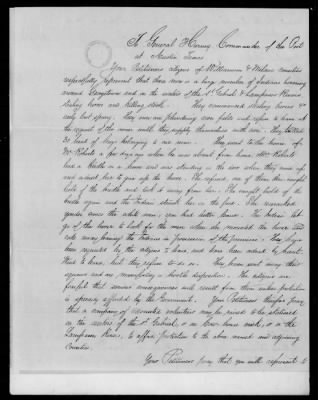 To General Harney Commander of the Post
at Austin Texas
Your Petitioners citizens of Williamson & Milam counties
respectfully represent that there now is a large number of Indians
around Georgetown and on the waters of the St Gabriel & Lampasas Rivers,
stealing horses and killing stock. They commenced stealing horses
early last spring. They are now plundering corn fields and refuse to leave at
the request of the owner until they supply themselves with corn. They
30 head of hogs belonging to one man. They went to the house of
Mr Roberts a few days ago when he was absent from home, Mrs Roberts
had a bridle on a horse and was standing in the door when they came up
and asked her to give up the horse. She refused, one of them then caught
hold of the bridle and took it away from her. She caught hold of the
bridle again and the Indian struck her in the face. She remarked
yonder comes the white men; and had better leave. The Indian let
go of the horse to look for the men when she
away
been requested by the citizens to leave, and have been ordered by
to leave, but they refuse to do so. They have been using their
squaws and are manifesting a hostile disposition. The citizens are
fearful that serious consequences will result from their unless protection
is speedily afforded by the Government. Your Petitioners therefore pray
that a company of mounted volunteers may be raised to be stationed
on the waters of the St Gabriel, or on Cow house creek, or on the
Lampasas River, to afford protection to the above named and adjoining
counties.
Your Petitioners pray that you will represent to